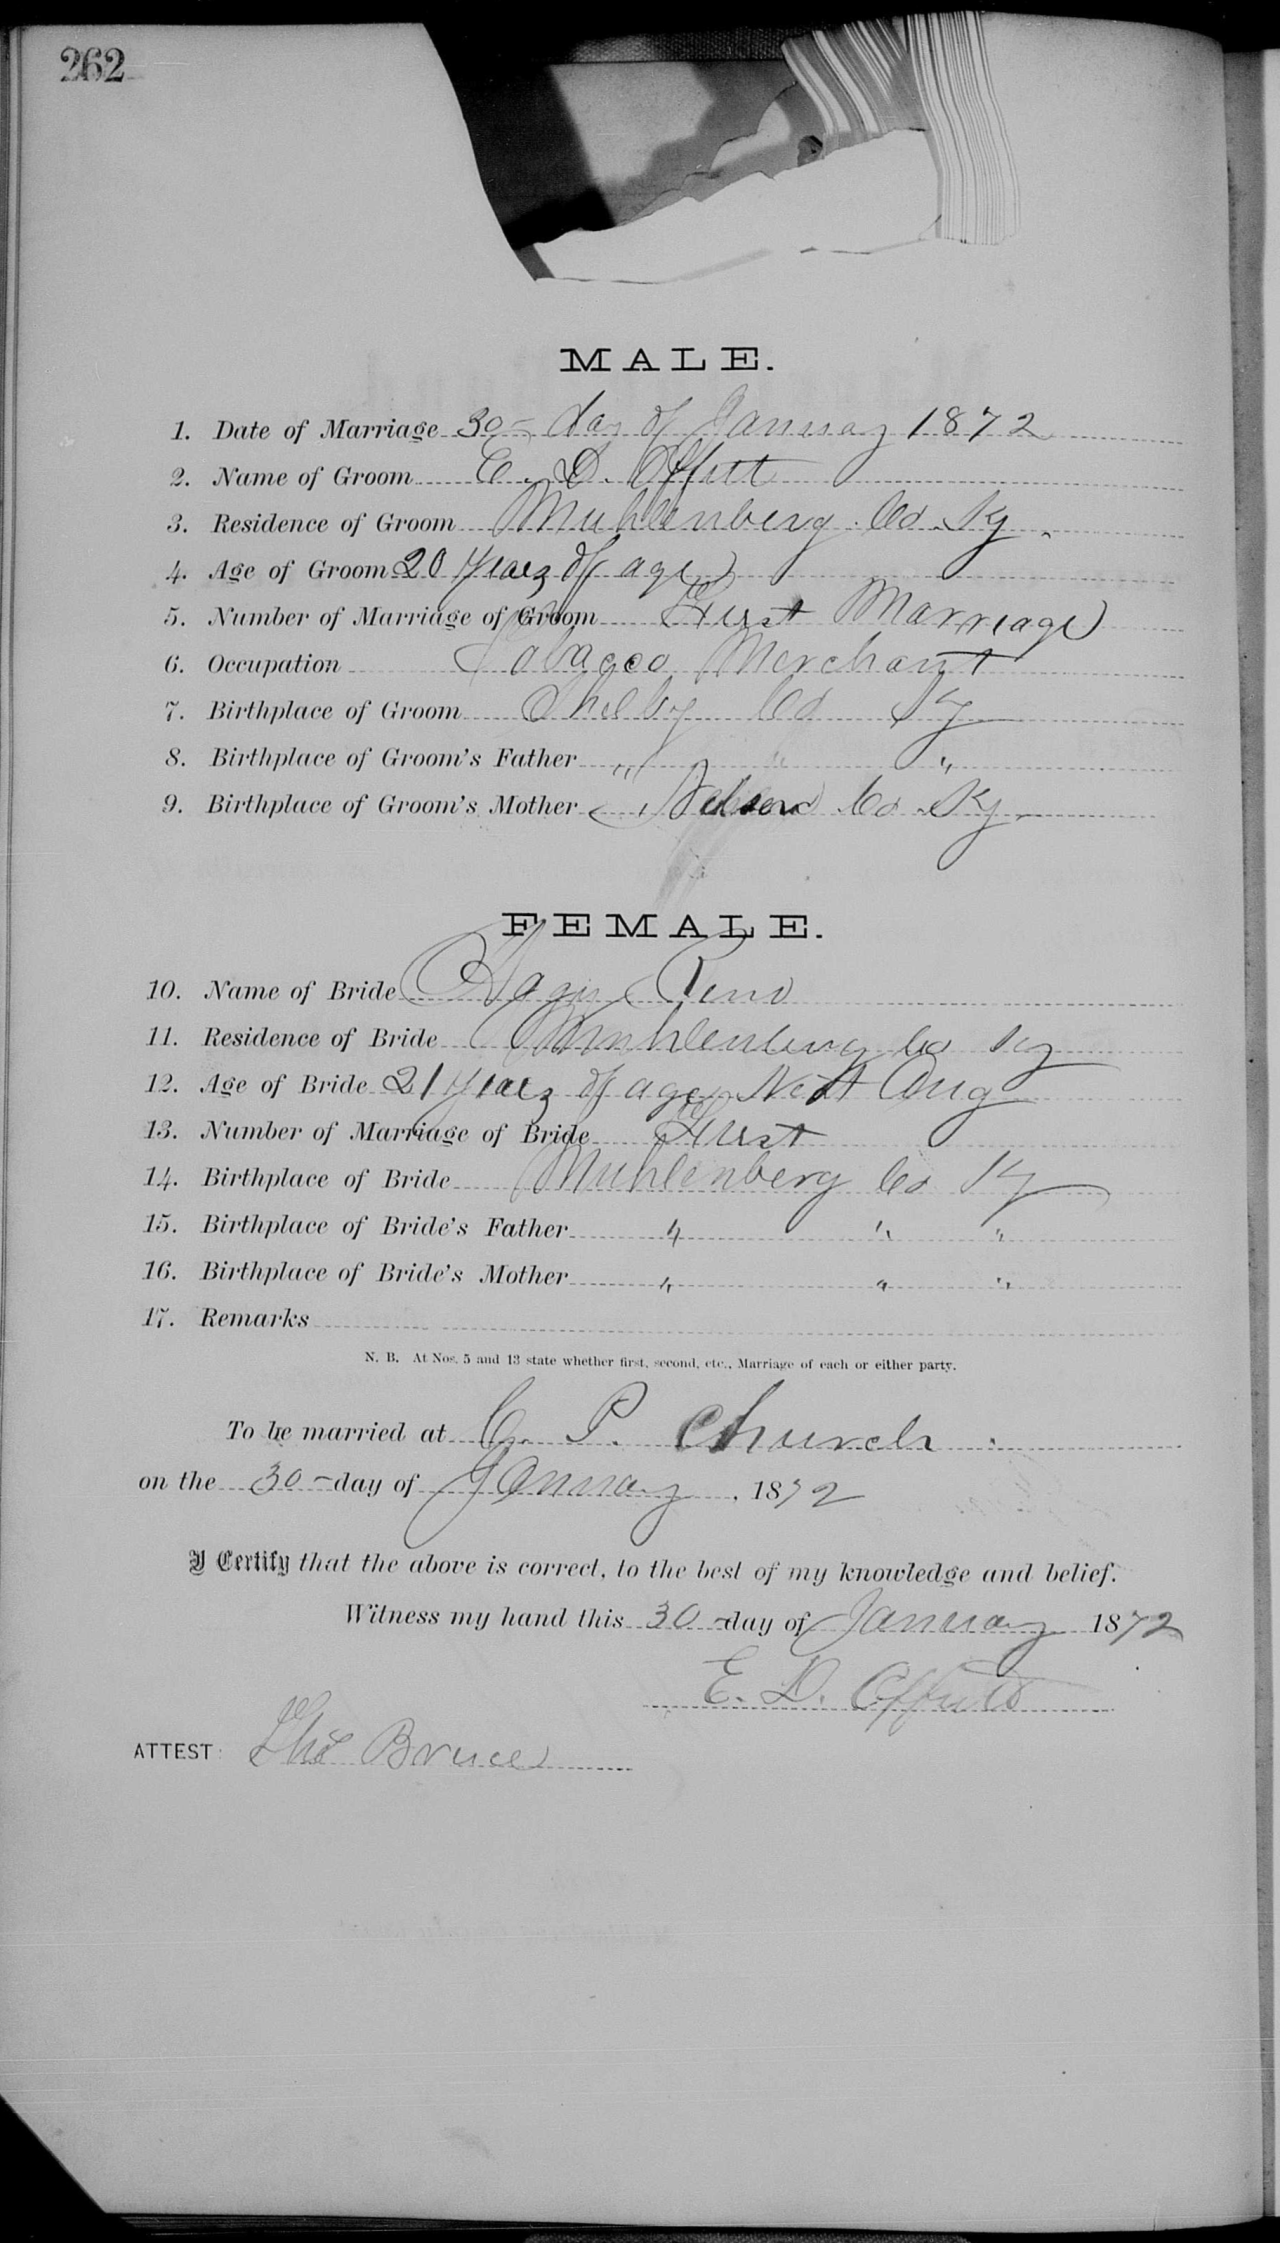 262
MALE.
1. Date of Marriage 30 - day of January 1872
2. Name of Groom E. D. Offutt
3. Residence of Groom Muhlenberg Co. Ky.
4. Age of Groom 20 years of age
5. Number of Marriage of Groom First Marriage
6. Occupation Tobacco Merchant
7. Birthplace of Groom Shelby Co Ky
8. Birthplace of Groom's Father " " "
9. Birthplace of Groom's Mother Nelson Co. Ky
FEMALE.
10. Name of Bride Reno
11. Residence of Bride Muhlenberg Co Ky
12. Age of Bride 21 years of age Next Aug
13. Number of Marriage of Bride First
14. Birthplace of Bride Muhlenberg Co Ky
15. Birthplace of Bride's Father " " "
16. Birthplace of Bride's Mother " " "
17. Remarks
N. B. At Nos. 5 and 13 state whether first, second, etc., Marriage of each or either party.
To be married at C. P. Church
on the 30 - day of January, 1872
I Certify that the above is correct, to the best of my knowledge and belief.
Witness my hand this 30 - day of January 1872
E. D. Offutt
ATTEST: Thos Bruce